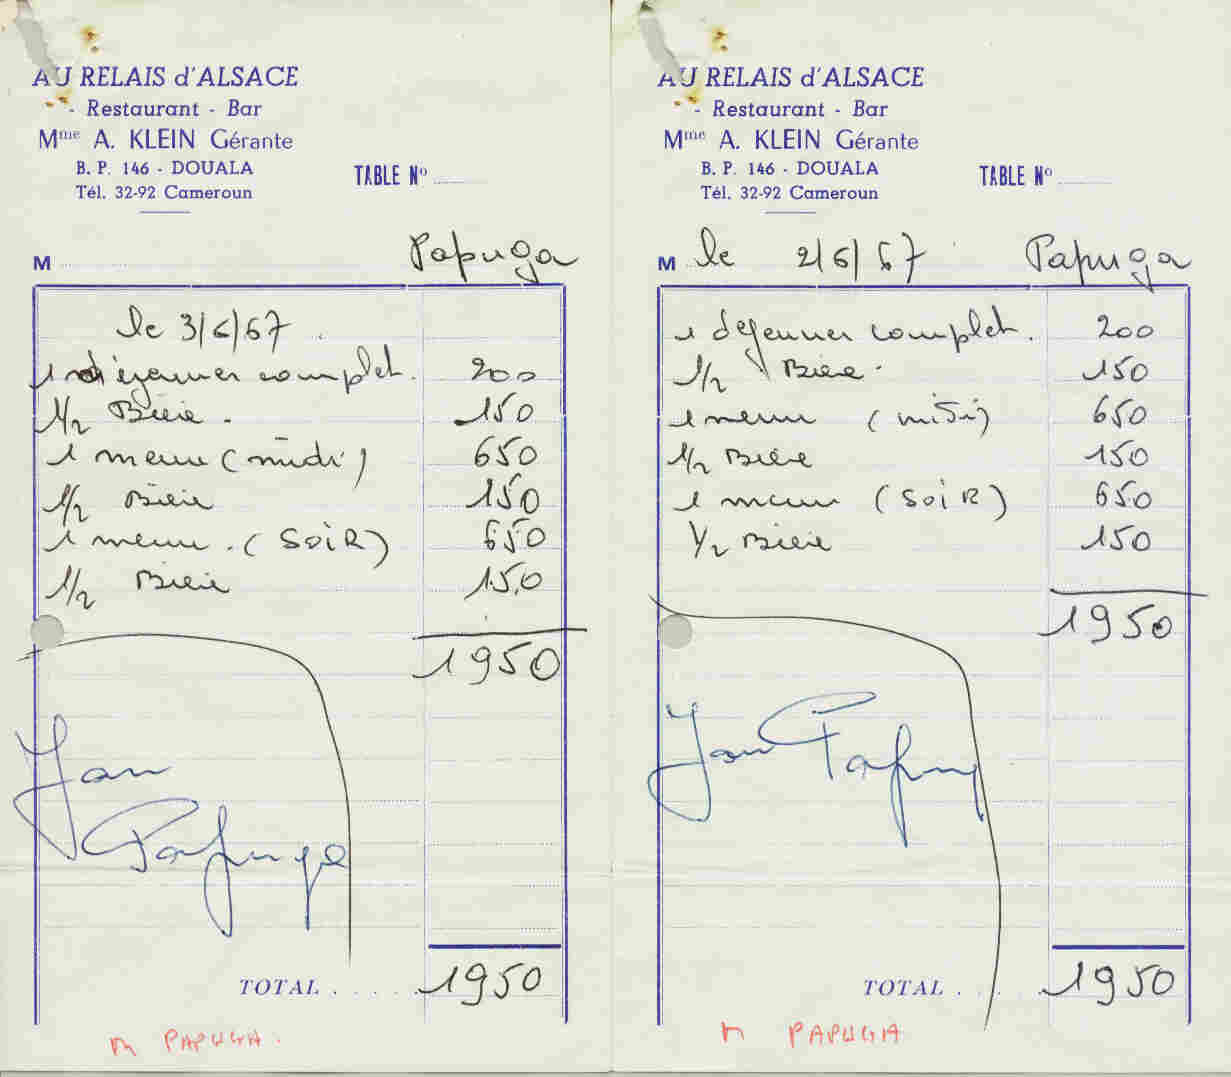 AU RELAIS d'ALSACE
- Restaurant - Bar
Mme A. KLEIN Gérante
B. P. 146 - DOUALA
Tél. 32-92 Cameroun
TABLE No
M Papuga
le 3/6/67
1 déjeuner complet. 200
1/2 Bière. 150
1 menu (midi) 650
1/2 Bière 150
1 menu. (SOIR) 650
1/2 Bière 150
1950
Jan
Papuga
TOTAL . . . . . 1950
M PAPUGA.
AU RELAIS d'ALSACE
- Restaurant - Bar
Mme A. KLEIN Gérante
B. P. 146 - DOUALA
Tél. 32-92 Cameroun
TABLE No
M le 2/6/67 Papuga
1 déjeuner complet. 200
1/2 Bière. 150
1 menu (midi) 650
1/2 Bière 150
1 menu (SOIR) 650
1/2 Bière 150
1950
Jan Papuga
TOTAL . . . . . 1950
M PAPUGA